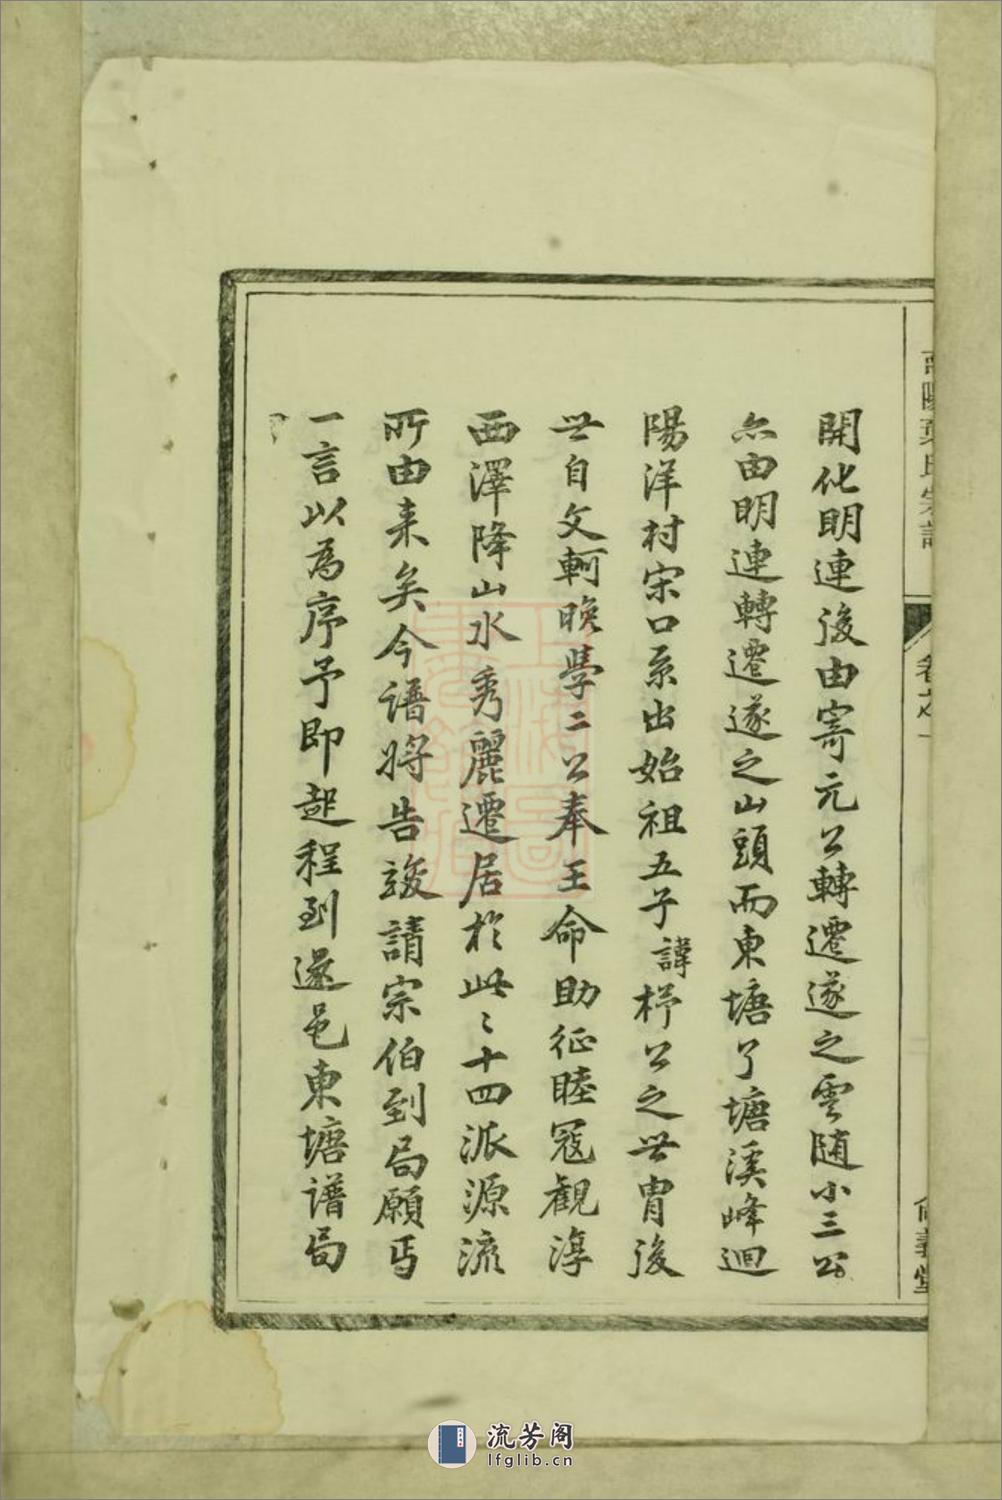 開化明連後由寄元公轉遷遂之雲随小三公
亦由明連轉遷遂之山頭而東塘了塘溪峰迴
陽洋村宋口系出始祖五子諱杼公之世胄後
世自文軻晚學二公奉王命助征睦寇觀淳
西澤降山水秀麗遷居於此々十四派源流
所由来矣今譜將告竣請宗伯到局願丐
一言以為序予即起程到遂邑東塘谱局
氏宗譜
卷之一
尚義堂
流芳阁
lfglib.cn